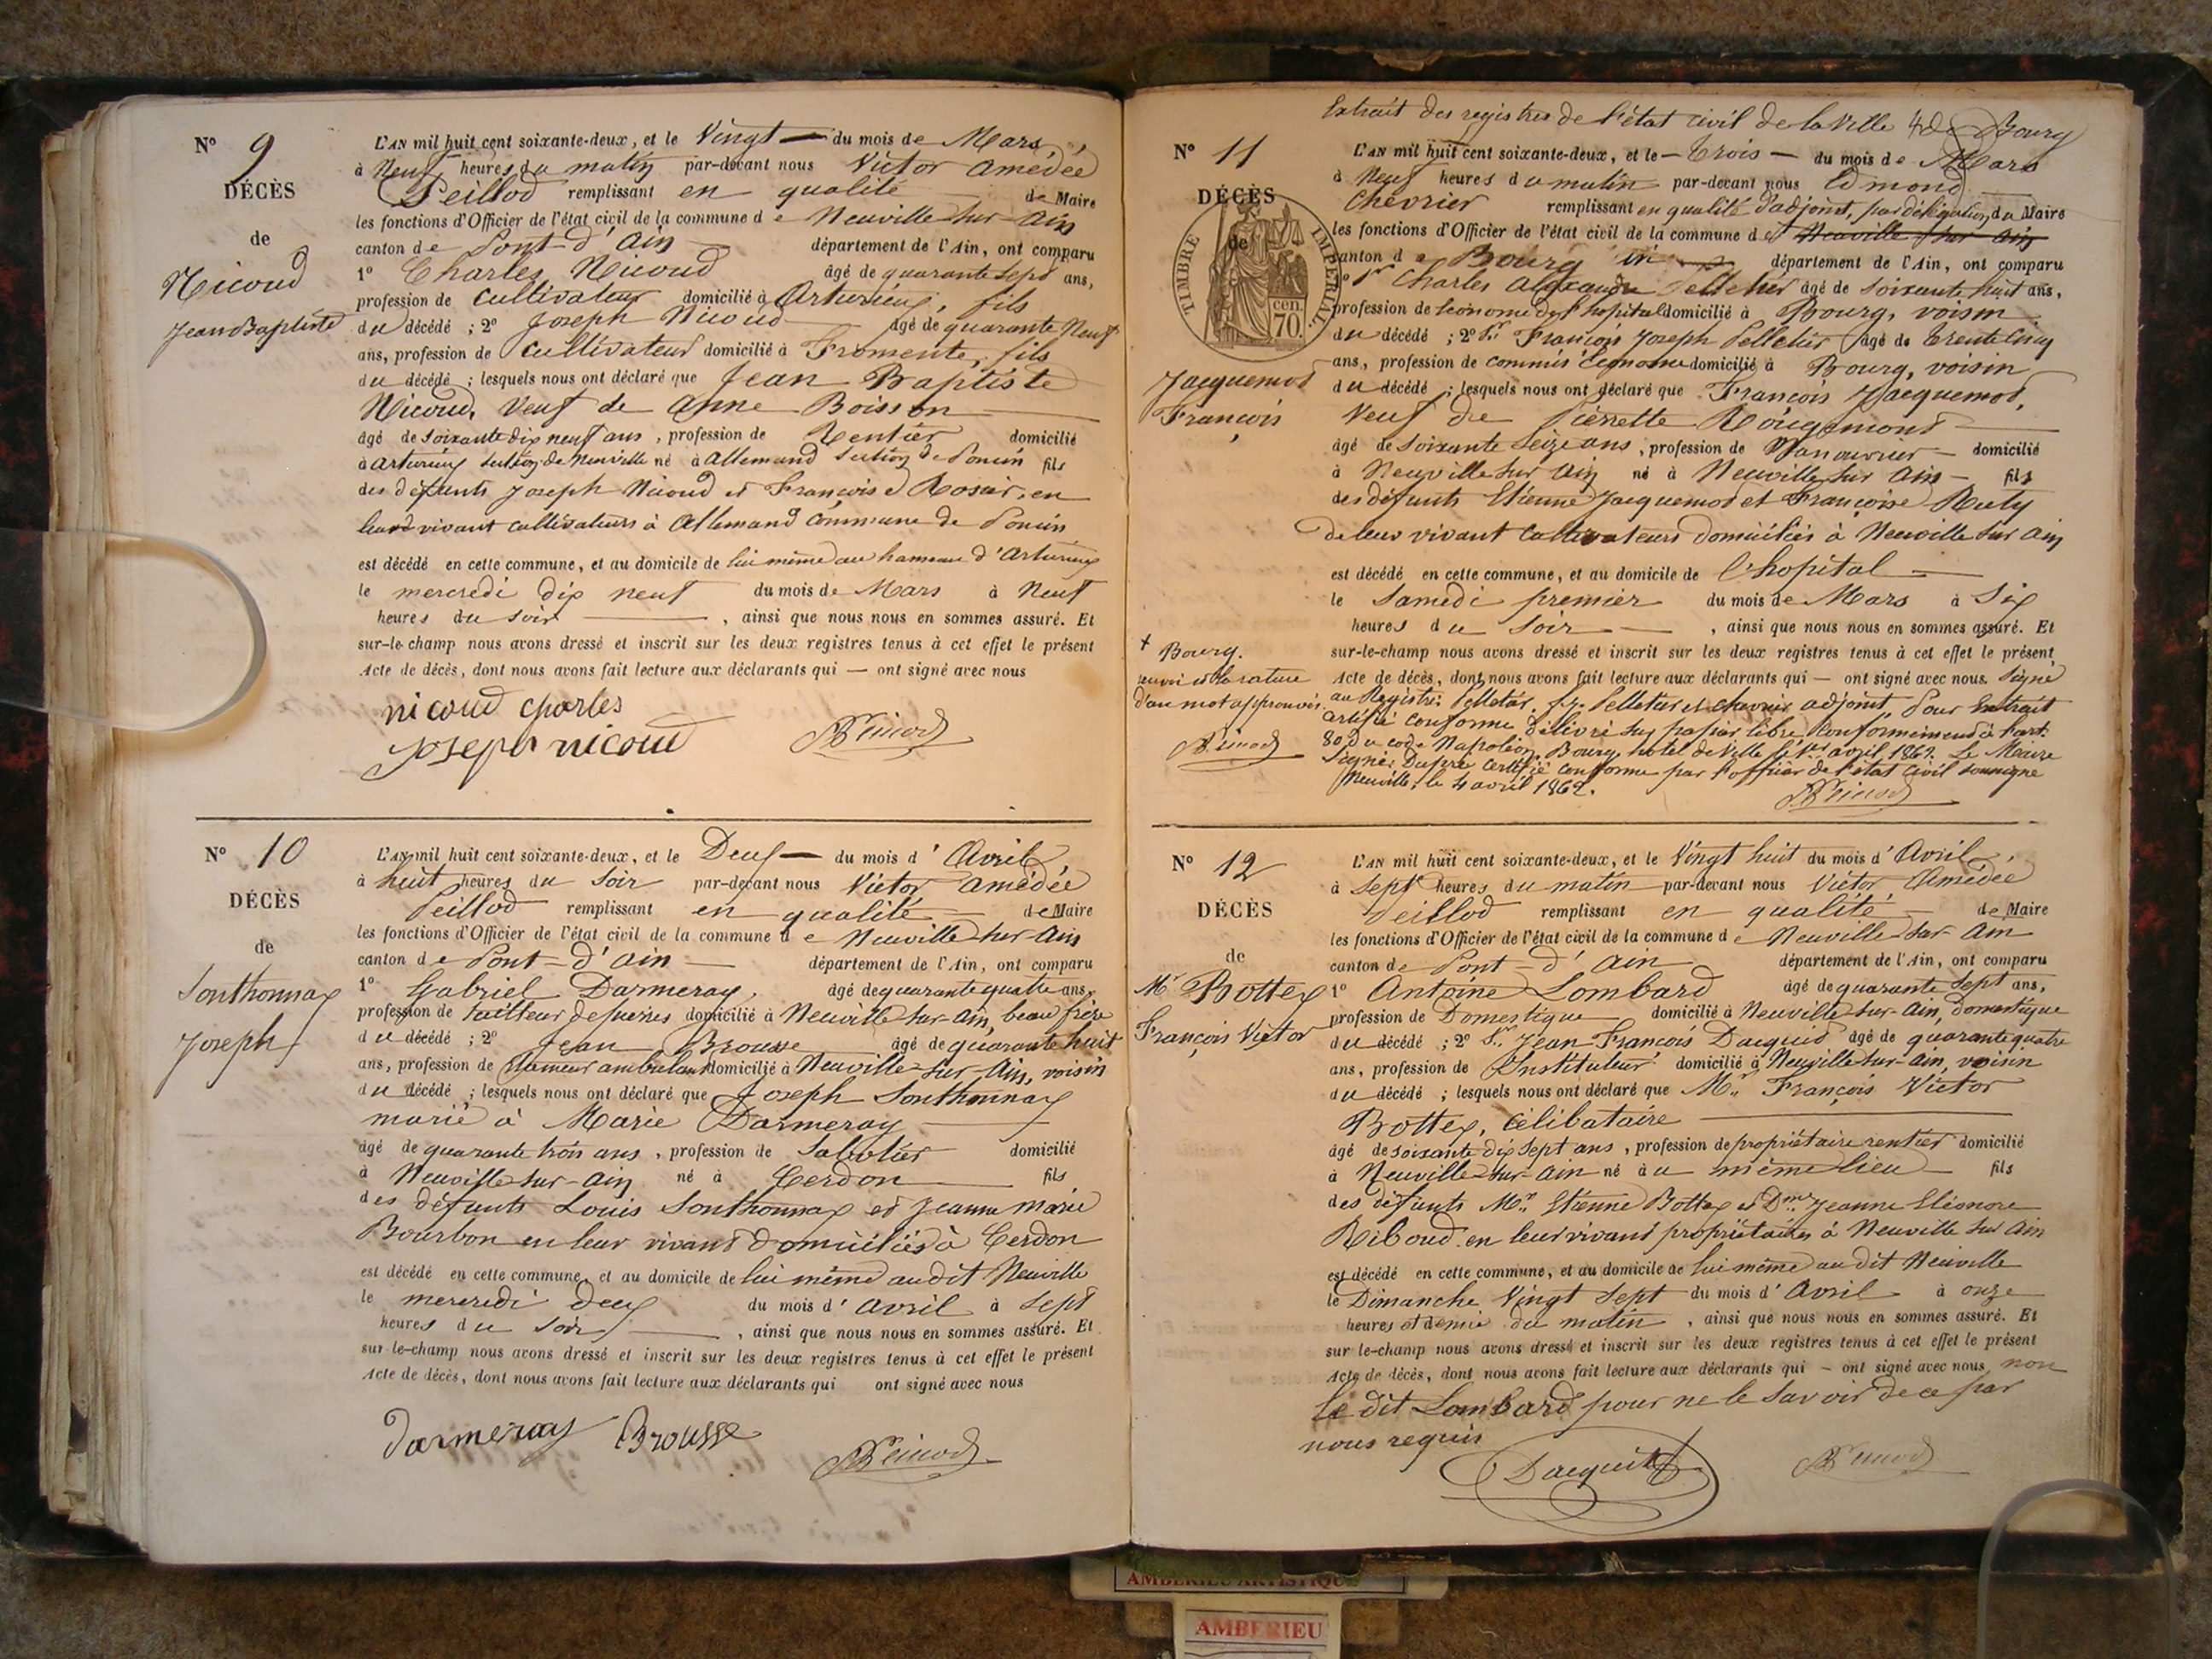 N° 9
DÉCÈS
de
Nicoud
Jean Baptiste
L'AN mil huit cent soixante-deux, et le Vingt du mois de Mars,
à Neuf heures du matin par-devant nous Victor Amédée
Peillod remplissant en qualité de Maire
les fonctions d'Officier de l'état civil de la commune de Neuville sur Ain
canton de Pont-d'Ain département de l'Ain, ont comparu
1° Charles Nicoud âgé de quarante sept ans,
profession de cultivateur domicilié à Arturieux, fils
du décédé ; 2° Joseph Nicoud âgé de quarante Neuf
ans, profession de Cultivateur domicilié à Fromente, fils
du décédé ; lesquels nous ont déclaré que Jean Baptiste
Nicoud, Veuf de Anne Boisson
âgé de soixante dix neuf ans, profession de Rentier domicilié
à Arturieux section de Neuville né à Allemand section de Poncin fils
des défunts Joseph Nicoud et Françoise Rosier, en
leur vivant cultivateurs à Allemand commune de Poncin
est décédé en cette commune, et au domicile de lui même au hameau d'Arturieux
le mercredi dix neuf du mois de Mars à Neuf
heures du soir, ainsi que nous nous en sommes assuré. Et
sur-le-champ nous avons dressé et inscrit sur les deux registres tenus à cet effet le présent
Acte de décès, dont nous avons fait lecture aux déclarants qui — ont signé avec nous
nicoud charles
joseph nicoud
N° 10
DÉCÈS
de
Sonthonnax
Joseph
L'AN mil huit cent soixante-deux, et le Deux du mois d'Avril,
à huit heures du soir par-devant nous Victor Amédée
Peillod remplissant en qualité de Maire
les fonctions d'Officier de l'état civil de la commune de Neuville sur Ain
canton de Pont-d'Ain département de l'Ain, ont comparu
1° Gabriel Darmeray, âgé de quarante quatre ans,
profession de tailleur de pierres domicilié à Neuville sur-Ain, beau frère
du décédé ; 2° Jean Brousse âgé de quarante huit
ans, profession de ambulant domicilié à Neuville-sur-Ain, voisin
du décédé ; lesquels nous ont déclaré que Joseph Sonthonnax
marié à Marie Darmeray
âgé de quarante trois ans, profession de Sabotier domicilié
à Neuville-sur-Ain né à Cerdon fils
des défunts Louis Sonthonnax et Jeanne Marie
Bourbon en leur vivant domiciliés à Cerdon
est décédé en cette commune, et au domicile de lui même audit Neuville
le mercredi deux du mois d'avril à sept
heures du soir, ainsi que nous nous en sommes assuré. Et
sur-le-champ nous avons dressé et inscrit sur les deux registres tenus à cet effet le présent
Acte de décès, dont nous avons fait lecture aux déclarants qui ont signé avec nous
Darmeray Brousse
Extrait des registres de l'état civil de la Ville de Bourg
N° 11
DÉCÈS
de
TIMBRE IMPÉRIAL
cen.
70.
Jacquemod
François
L'AN mil huit cent soixante-deux, et le - Trois - du mois de Mars
à Neuf heures du matin par-devant nous Edmond
Chevrier remplissant en qualité d'adjoint, par délégation, du Maire
les fonctions d'Officier de l'état civil de la commune de Neuville sur Ain
canton de Bourg département de l'Ain, ont comparu
1° Sr Charles Alexandre Pelletier âgé de soixante huit ans,
profession de économe de l'hopital domicilié à Bourg, voisin
du décédé ; 2° Sr François Joseph Pelletier âgé de trente cinq
ans, profession de commis économe domicilié à Bourg, voisin
du décédé ; lesquels nous ont déclaré que François Jacquemod,
Veuf de Pierrette Rougemont
âgé de soixante seize ans, profession de Manouvrier domicilié
à Neuville sur Ain né à Neuville sur Ain fils
des défunts Etienne Jacquemod et Françoise Ruty
de leur vivant cultivateurs domiciliés à Neuville sur Ain
est décédé en cette commune, et au domicile de l'hopital
le Samedi premier du mois de Mars à Six
heures du soir, ainsi que nous nous en sommes assuré. Et
sur-le-champ nous avons dressé et inscrit sur les deux registres tenus à cet effet le présent
Acte de décès, dont nous avons fait lecture aux déclarants qui — ont signé avec nous. Signé
au Registre: Pelletier, fs. Pelletier et Chevrier adjoint, Pour Extrait
certifié conforme délivré sur papier libre conformément à l'art.
80 du code Napoléon. Bourg, hotel de Ville le 1er avril 1862. Le Maire
Signé: certifié conforme par l'officier de l'état civil soussigné
Neuville, le 4 avril 1862.
+ Bourg.
renvoi et la rature
d'un mot approuvés
N° 12
DÉCÈS
de
Mr Bottex
François Victor
L'AN mil huit cent soixante-deux, et le Vingt huit du mois d'Avril,
à sept heures du matin par-devant nous Victor Amédée
Peillod remplissant en qualité de Maire
les fonctions d'Officier de l'état civil de la commune de Neuville sur Ain
canton de Pont-d'Ain département de l'Ain, ont comparu
1° Antoine Lombard âgé de quarante sept ans,
profession de Domestique domicilié à Neuville-sur-Ain, domestique
du décédé ; 2° Sr. Jean François Dacquit âgé de quarante quatre
ans, profession de Instituteur domicilié à Neuville-sur-Ain, voisin
du décédé ; lesquels nous ont déclaré que Mr. François Victor
Bottex, célibataire
âgé de soixante dix sept ans, profession de propriétaire rentier domicilié
à Neuville-sur-Ain né au même lieu fils
des défunts Mr. Etienne Bottex et Dme Jeanne Eléonore
Riboud en leur vivant propriétaires à Neuville sur Ain
est décédé en cette commune, et au domicile de lui même au dit Neuville
le Dimanche Vingt sept du mois d'Avril à onze
heures et demie du matin, ainsi que nous nous en sommes assuré. Et
sur le-champ nous avons dressé et inscrit sur les deux registres tenus à cet effet le présent
Acte de décès, dont nous avons fait lecture aux déclarants qui — ont signé avec nous, non
le dit Lombard pour ne le savoir de ce par
nous requis
Dacquit
AMBERIEU ARTISTIQUE
AMBERIEU